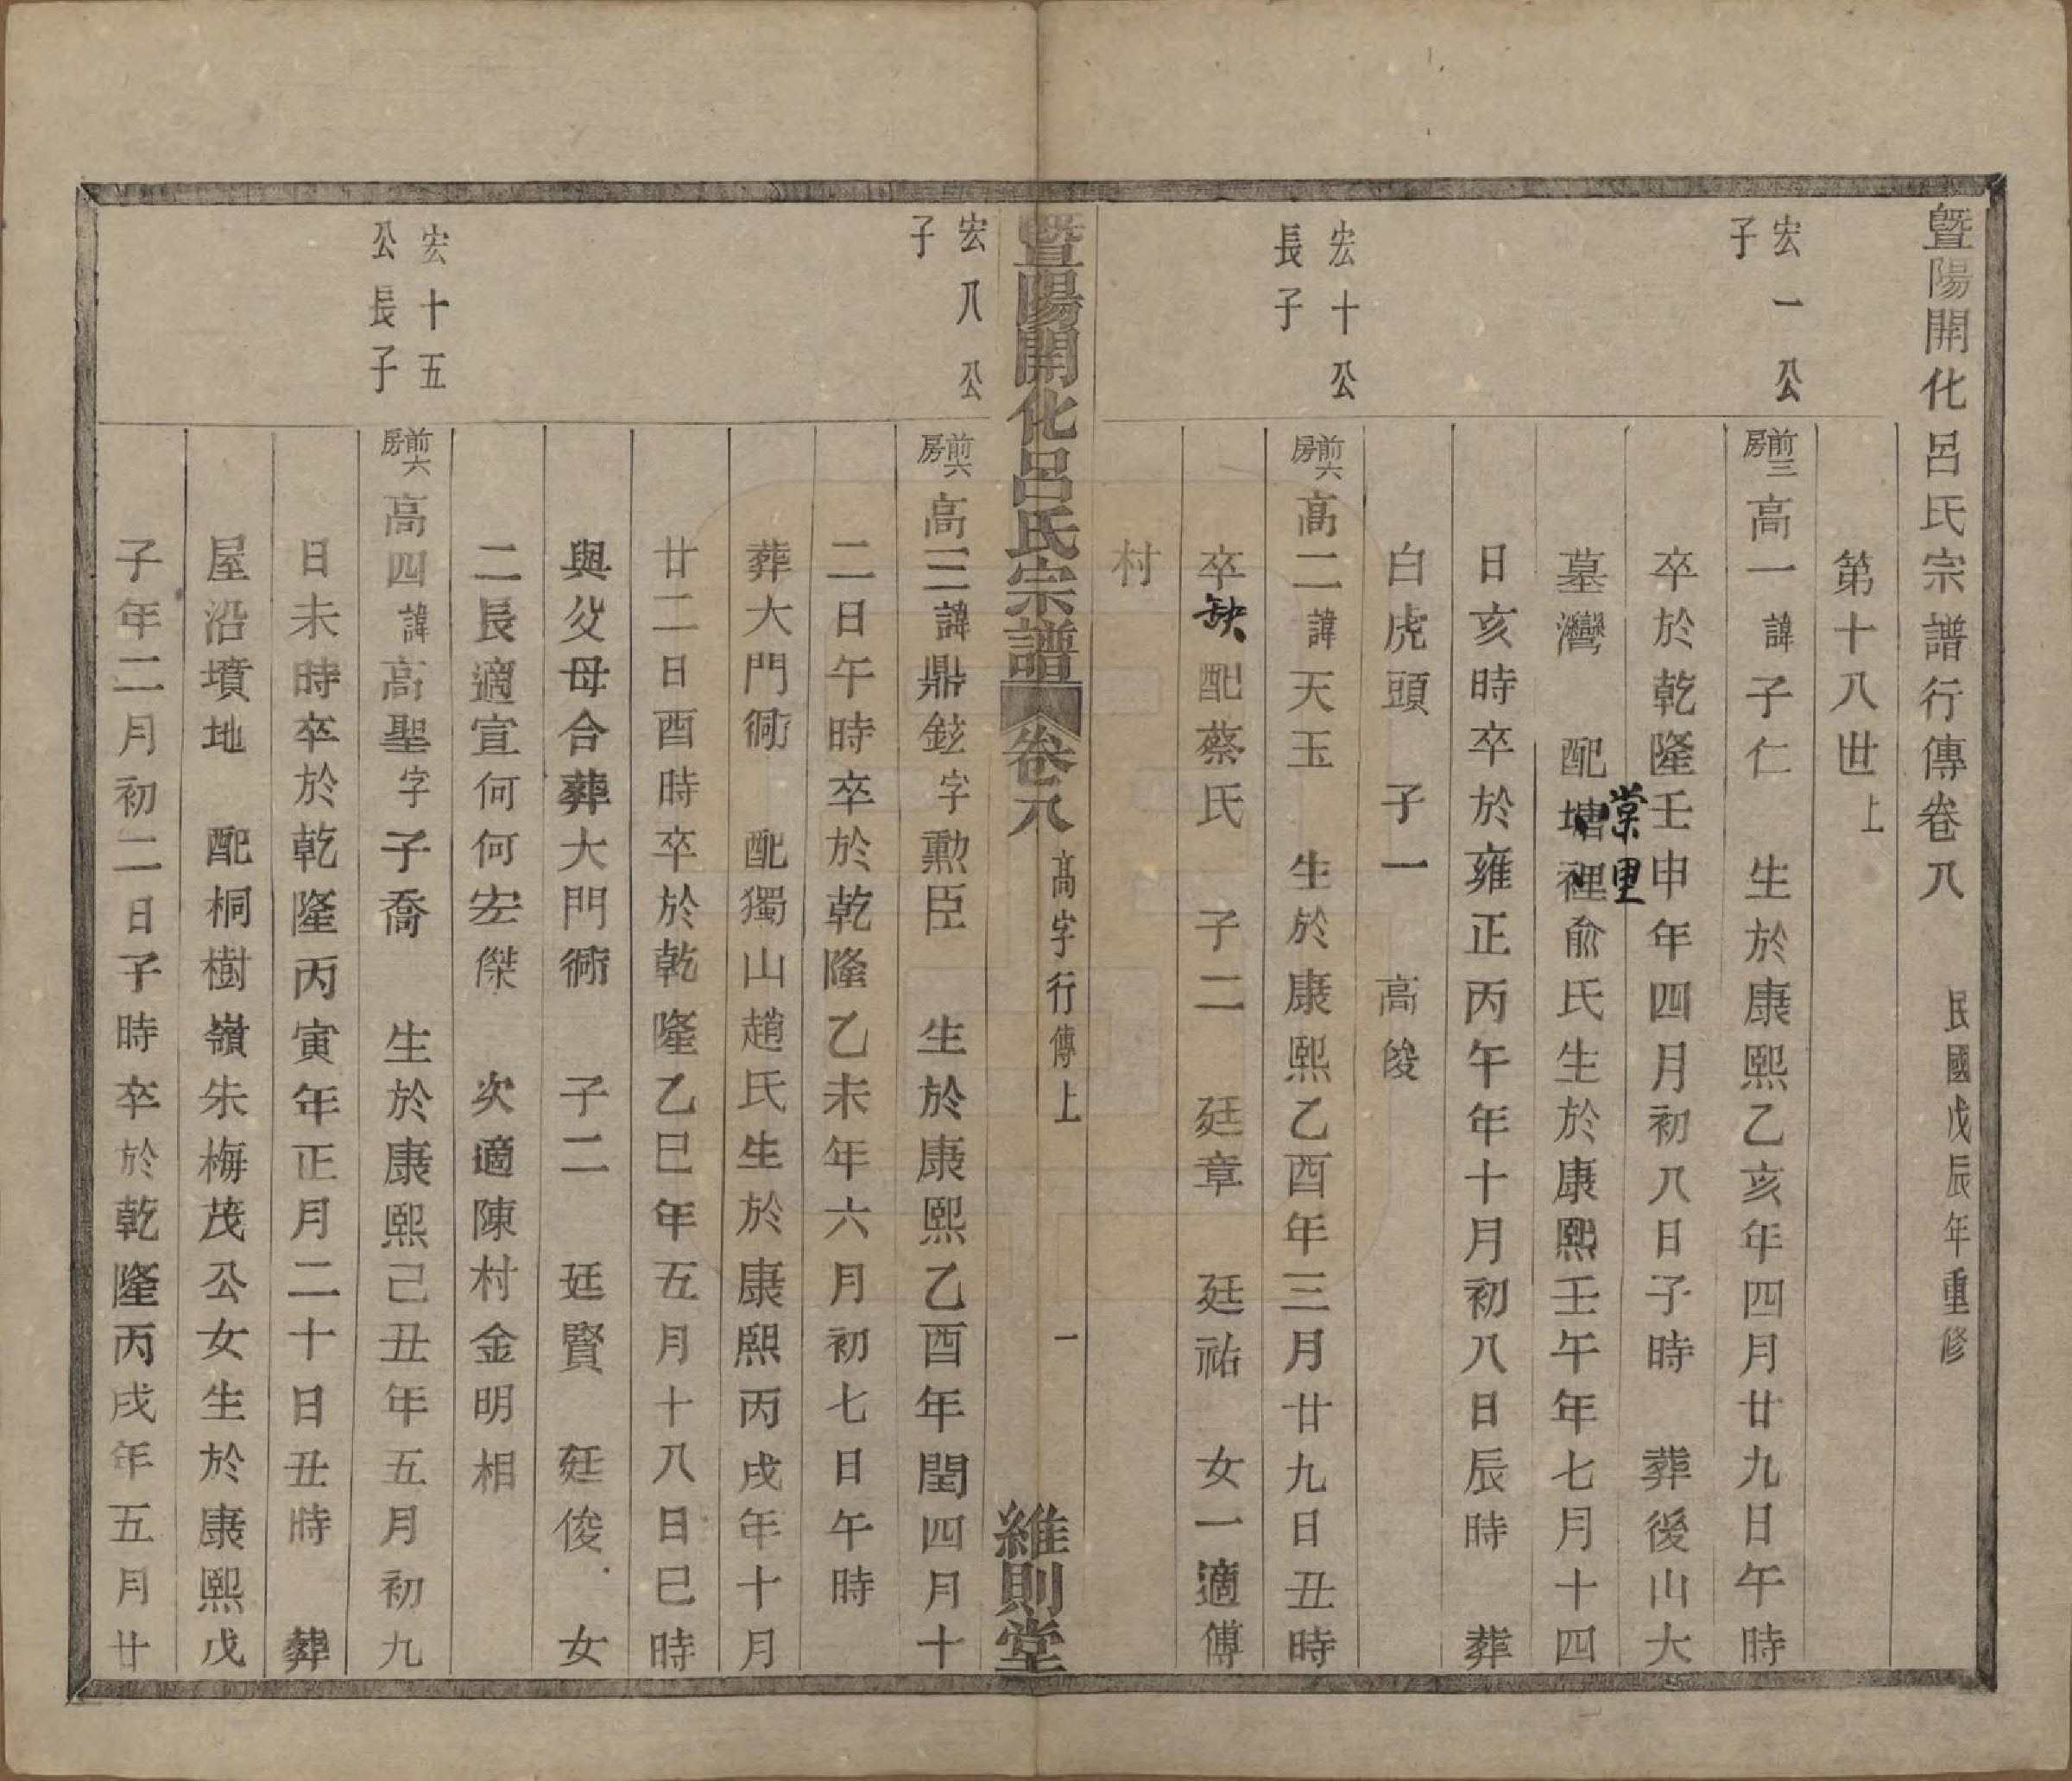 暨陽開化呂氏宗譜行傳卷八　民國戊辰年重修
第十八世上
宏一公
子
前三房高一諱子仁　生於康熙乙亥年四月廿九日午時
卒於乾隆壬申年四月初八日子時　葬後山大
棠里
墓灣　配塘裡俞氏生於康熙壬午年七月十四
日亥時卒於雍正丙午年十月初八日辰時　葬
白虎頭　子一　高俊
宏十公
長子
前六房高二諱天玉　生於康熙乙酉年三月廿九日丑時
卒缺配蔡氏　子二　廷章　廷祐　女一適傅
村
暨陽開化呂氏宗譜　卷八　高字行傳上　一　維則堂
宏八公
子
前六房高三諱鼎鉉字勲臣　生於康熙乙酉年閏四月十
二日午時卒於乾隆乙未年六月初七日午時
葬大門衕　配獨山趙氏生於康熙丙戌年十月
廿二日酉時卒於乾隆乙巳年五月十八日巳時
與父母合葬大門衕　子二　廷賢　廷俊　女
二長適宣何何宏傑　次適陳村金明相
宏十五
公長子
前六房高四諱高聖字子喬　生於康熙己丑年五月初九
日未時卒於乾隆丙寅年正月二十日丑時　葬
屋沿墳地　配桐樹嶺朱梅茂公女生於康熙戊
子年二月初二日子時卒於乾隆丙戌年五月廿